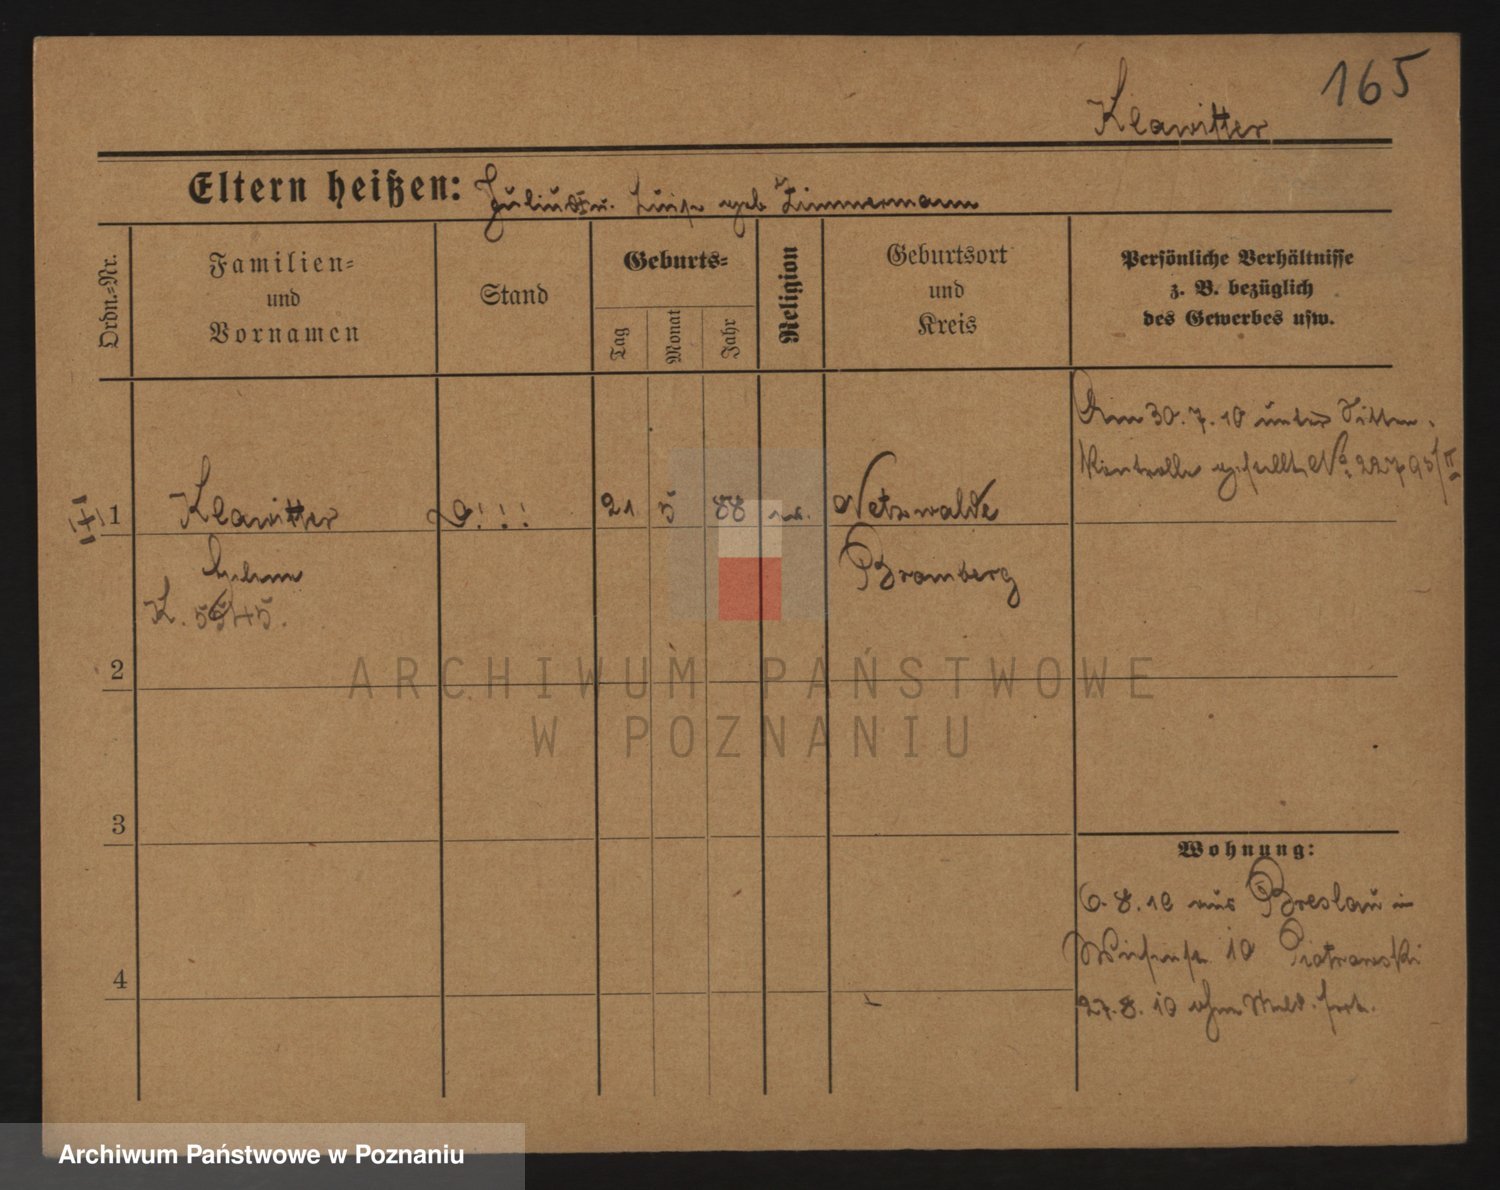 165
Klawitter
Eltern heißen: Julius u. Luise geb Zimmermann
Ordn.=Nr.
Familien=
und
Vornamen
Stand
Geburts=
Tag
Monat
Jahr
Religion
Geburtsort
und
Kreis
Persönliche Verhältnisse
z. B. bezüglich
des Gewerbes usw.
Am 30.7.10 unter Sitten
Kontrolle gestellt No 22793/II
1 Klawitter 21 5 88 Netzwalde
Bromberg
K.
2
ARCHIWUM PAŃSTWOWE
W POZNANIU
3
Wohnung:
6.8.10 aus Breslau in
10 Piotrowski
4
27.8.10 ohne Meld. fort.
Archiwum Państwowe w Poznaniu